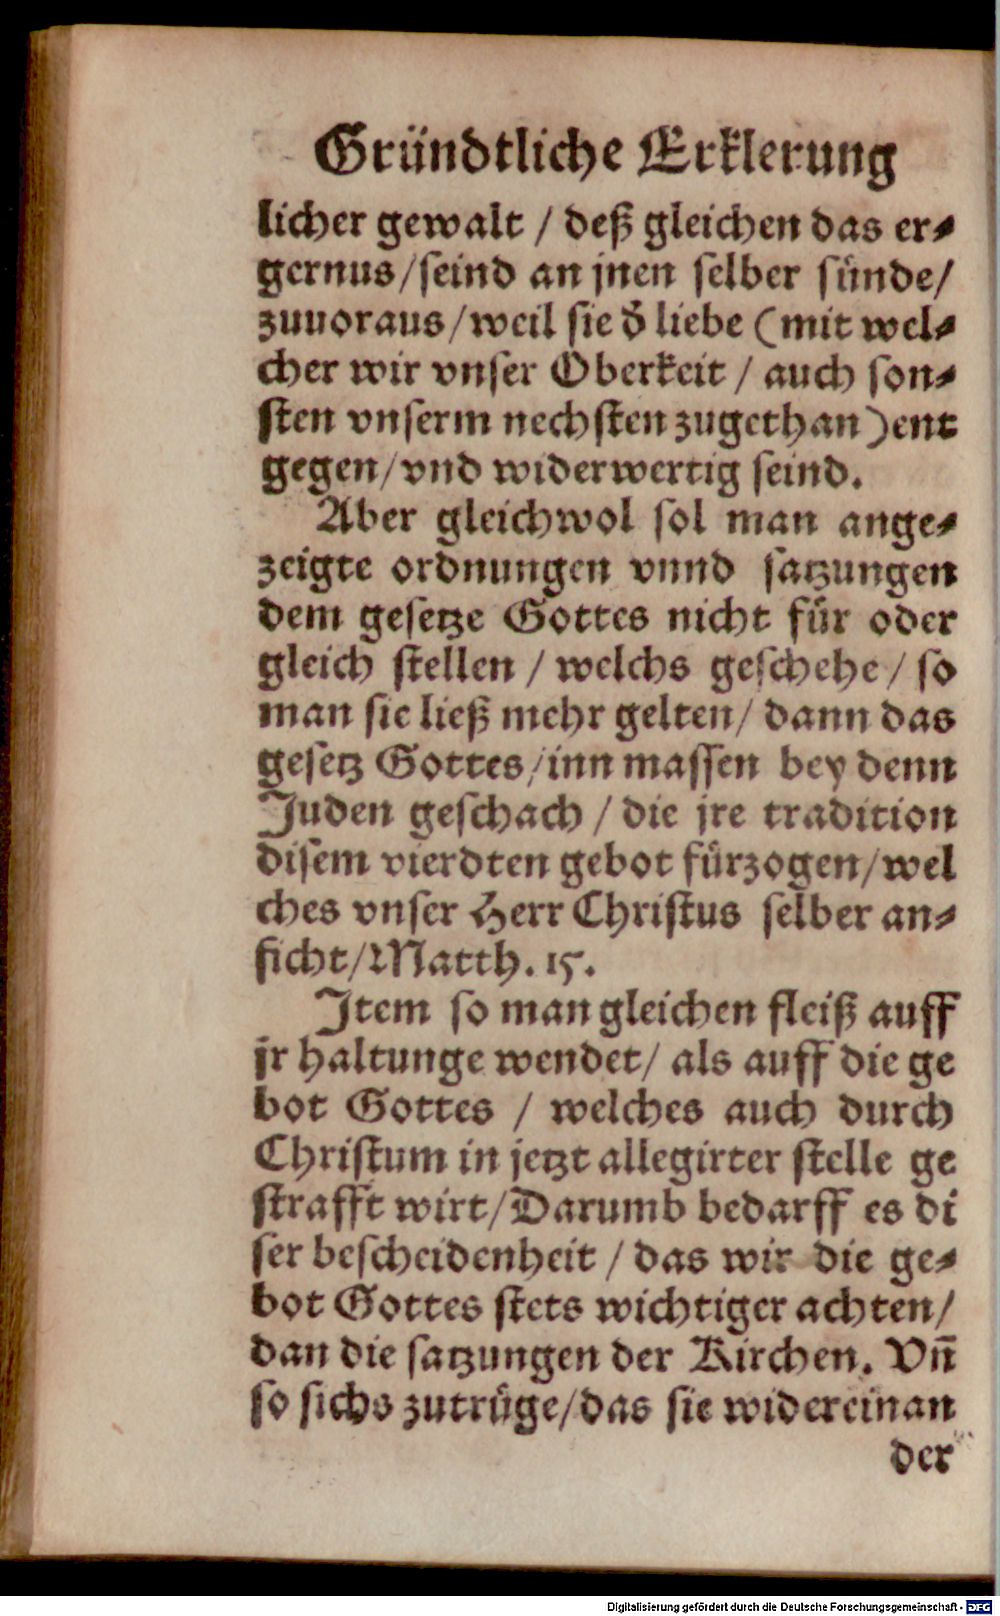 Gründtliche Erklerung
licher gewalt / deß gleichen das er⸗
gernus/seind an jnen selber sünde/
zuuoraus/weil sie d̕ liebe (mit wel⸗
cher wir vnser Oberkeit / auch son⸗
sten vnserm nechsten zugethan)ent
gegen/vnd widerwertig seind.
Aber gleichwol sol man ange⸗
zeigte ordnungen vnnd satzungen
dem gesetze Gottes nicht für oder
gleich stellen / welchs geschehe/ so
man sie ließ mehr gelten/ dann das
gesetz Gottes/inn massen bey denn
Juden geschach / die jre tradition
disem vierdten gebot fürzogen/wel
ches vnser Herr Christus selber an⸗
ficht/Matth. 15.
Item so man gleichen fleiß auff
jr haltunge wendet/ als auff die ge
bot Gottes / welches auch durch
Christum in jetzt allegirter stelle ge
strafft wirt/Darumb bedarff es di
ser bescheidenheit / das wir die ge⸗
bot Gottes stets wichtiger achten/
dan die satzungen der Kirchen. Vn̄
so sichs zutrüge/das sie widereinan
der
Digitalisierung gefördert durch die Deutsche Forschungsgemeinschaft - DFG